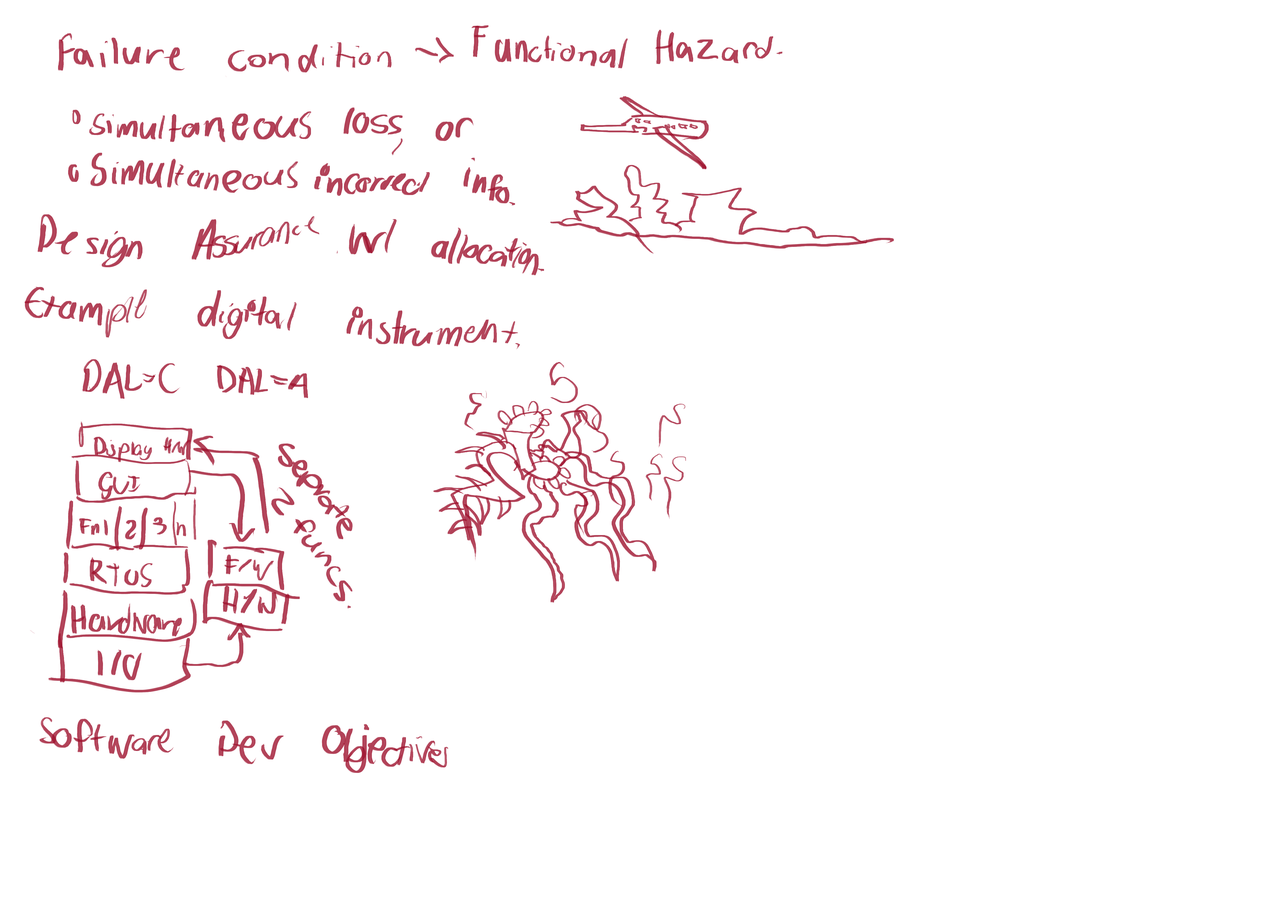 Failure condition → Functional Hazard.
• Simultaneous loss, or
• Simultaneous incorrect info.
Design Assurance lvl allocation.
Example digital instrument.
DAL=C DAL=A
Display H/W
GUI
Fn1/2/3/n
RTOS
Hardware
I/O
F/W
H/W
Seprate
2 funcs.
Software Dev Objectives